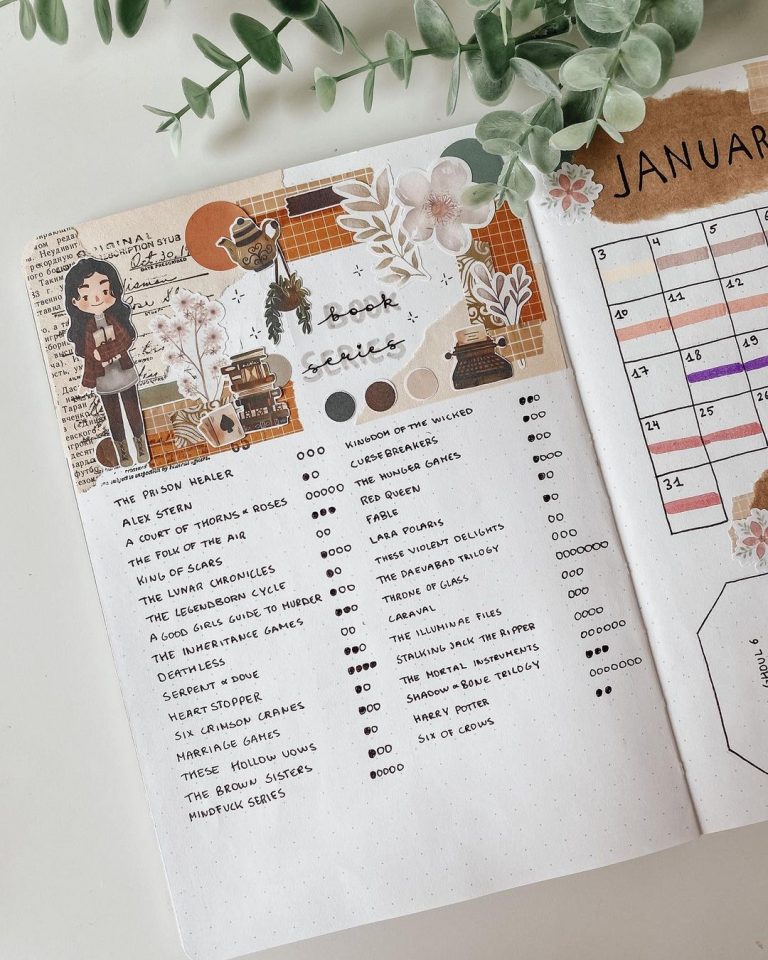 ORIGINAL
Oct 30
book
series
THE PRISON HEALER
ALEX STERN
A COURT OF THORNS & ROSES
THE FOLK OF THE AIR
KING OF SCARS
THE LUNAR CHRONICLES
THE LEGENDBORN CYCLE
A GOOD GIRLS GUIDE TO MURDER
THE INHERITANCE GAMES
DEATHLESS
SERPENT & DOVE
HEARTSTOPPER
SIX CRIMSON CRANES
MARRIAGE GAMES
THESE HOLLOW VOWS
THE BROWN SISTERS
MINDFUCK SERIES
KINGDOM OF THE WICKED
CURSEBREAKERS
THE HUNGER GAMES
RED QUEEN
FABLE
LARA POLARIS
THESE VIOLENT DELIGHTS
THE DAEVABAD TRILOGY
THRONE OF GLASS
CARAVAL
THE ILLUMINAE FILES
STALKING JACK THE RIPPER
THE MORTAL INSTRUMENTS
SHADOW & BONE TRILOGY
HARRY POTTER
SIX OF CROWS
JANUAR
3 4 5
10 11 12
17 18 19
24 25 26
31